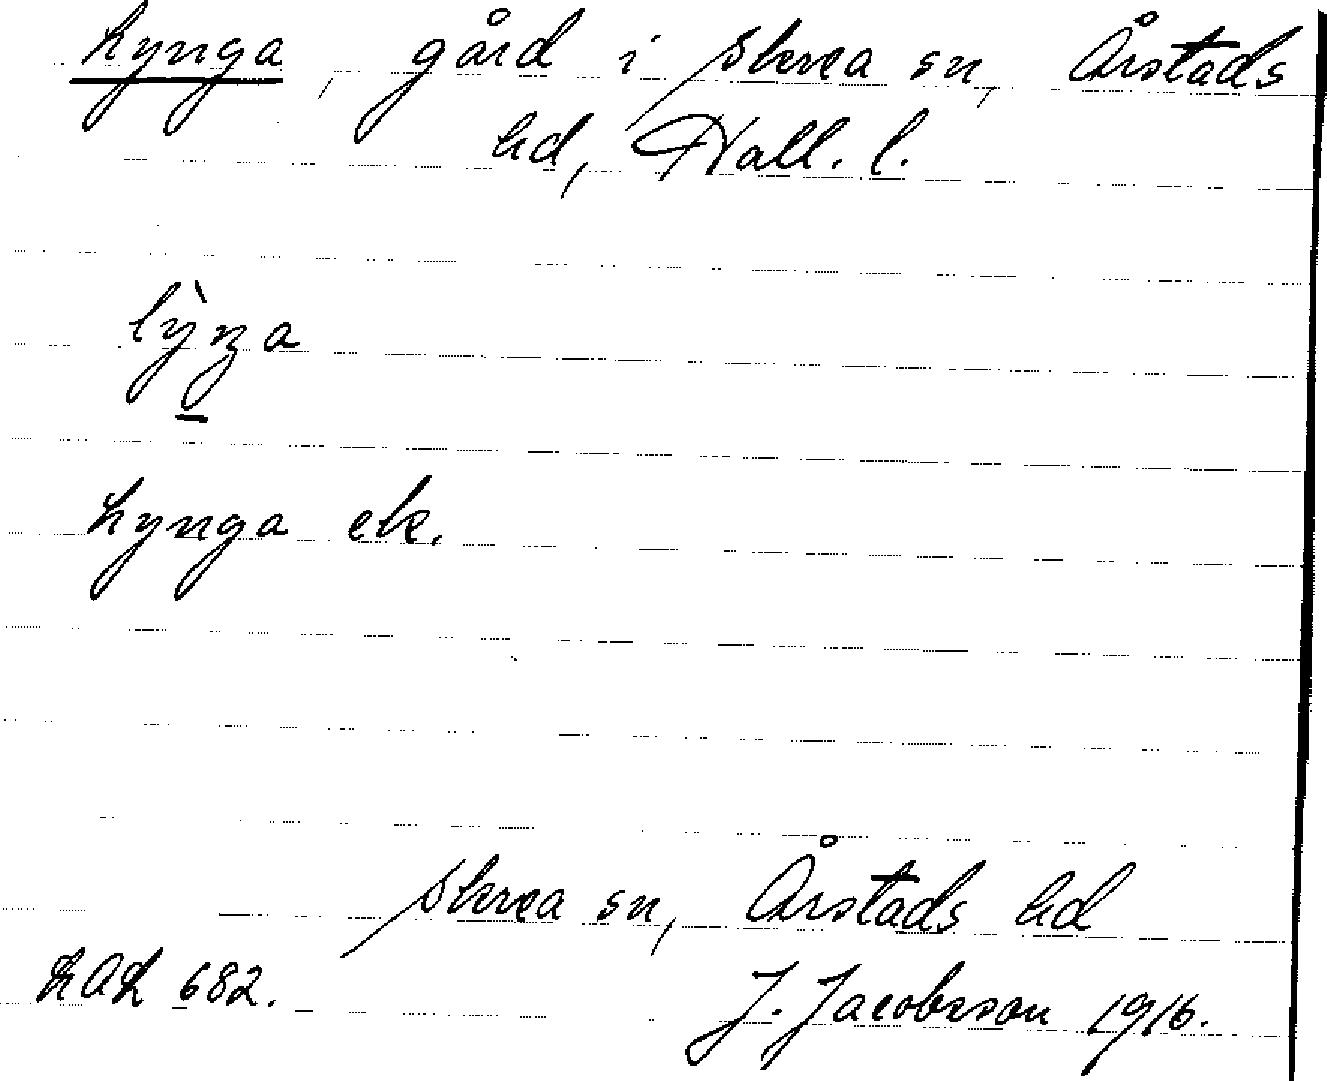 Lynga, gård i Skrea sn, Årstads
hd, Hall. l.
lỳŋa
Lynga ek.
Skrea sn, Årstads hd
LAL 682.
J. Jacobsson 1916.